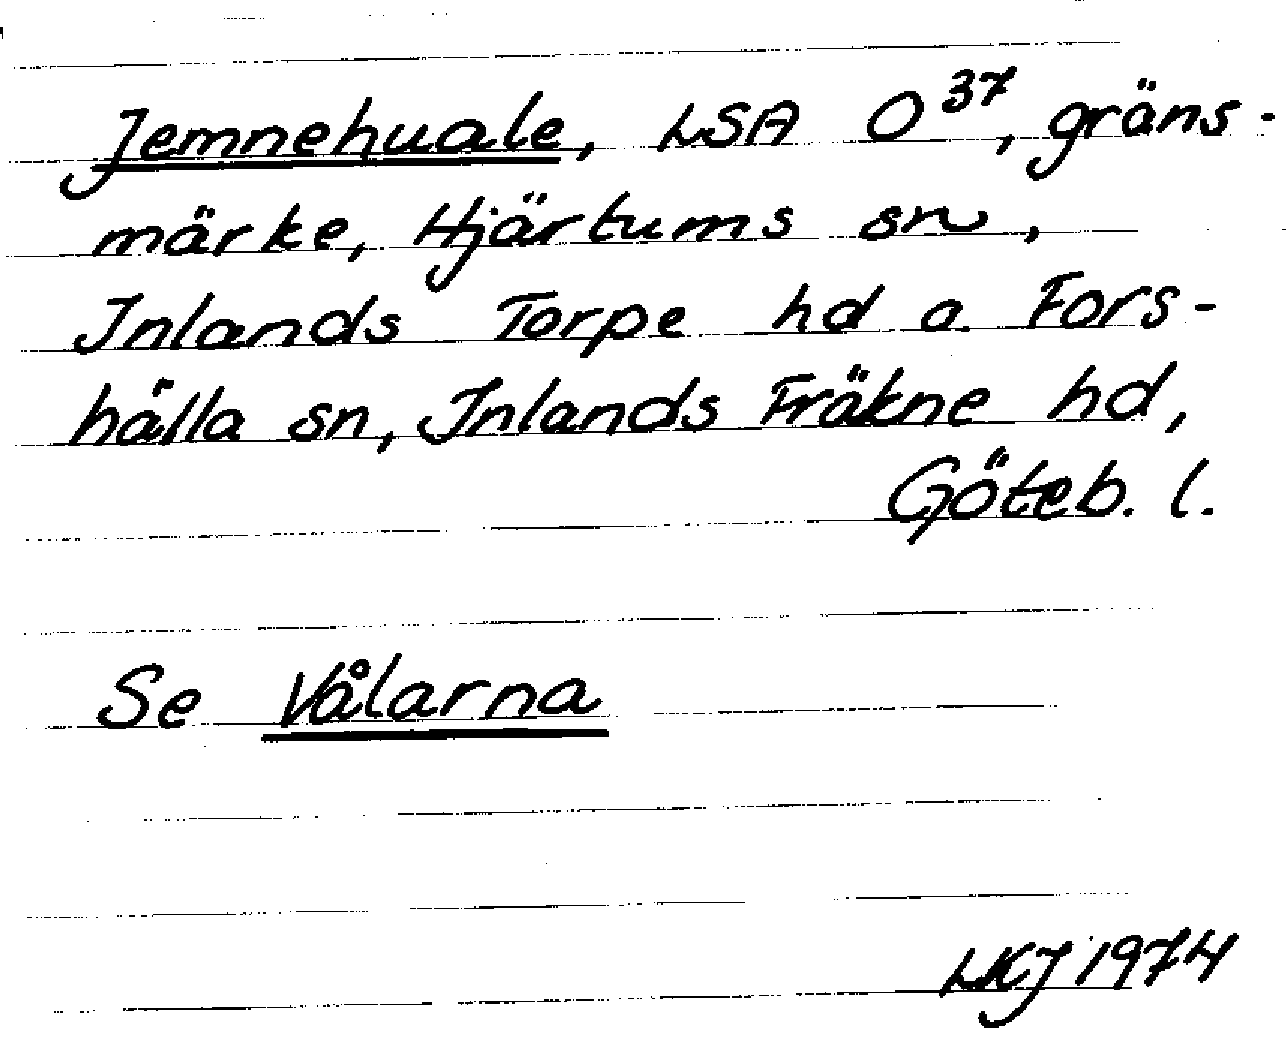 Jemnehuale, LSA O³⁷, gräns-
märke, Hjärtums sn,
Inlands Torpe hd o. Fors-
hälla sn, Inlands Fräkne hd,
Göteb. l.
Se Vålarna
LKJ 1974